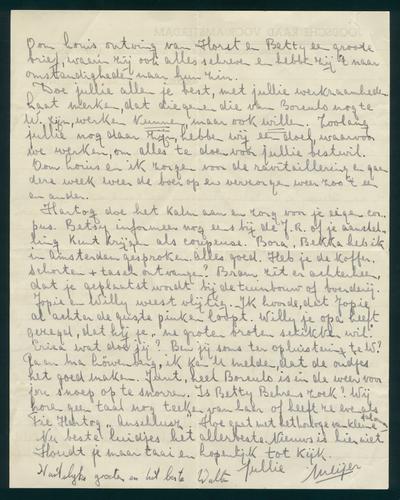 Oom Louis ontving van Horst en Betty een groote
brief, waarin zij ook alles schreven en hebben zij 't naar
omstandigheden naar hun zin.
Doe jullie allen je best, met jullie werkzaamheden
Laat merken, dat diegene die van Borculo nog te
W. zijn, werken kunnen, maar ook willen. Zoolang
jullie nog daar zijn, hebben wij een doel, waarvoor
we werken, om alles te doen voor jullie bestwil.
Oom Louis en ik zorgen voor de ravitailleering en gaan
deze week weer de boer op en verzorgen weer zoo 't een
en ander.
Hartog doe het kalm aan en zorg voor je eigen cor-
pus. Betsy informeer nog eens bij de J.R. of je aanstel-
ling kunt krijgen als coupeuse. Bora, Bekka heb ik
in Amsterdam gesproken. Alles goed. Heb je de koffer,
schorten + tasch ontvangen? Bram zit er achterheen,
dat je geplaatst wordt bij de tuinbouw of boerderij.
Jopie en Willy weest vlijtig. Ik hoorde, dat Jopie
al achter de pinken loopt. Willy je opa heeft
gezegd, dat hij je groeten schikken wil.
wat doe jij? Ben jij soms ter opluistering te W?
ik kan U melden, dat de
het goed maken. heel Borculo is in de weer voor
jou snoep op te snorren. Is Betty Behrens zoek? Wij
hooren geen taal nog teeken van haar of heeft ze evenals
Fie Hartog Hoe gaat met
Nu beste luidjes het allerbeste. Nieuws is hier niet
Houdt je maar taai en hopenlijk tot kijk.
Hartelijke groeten en het beste
Jullie Meijer